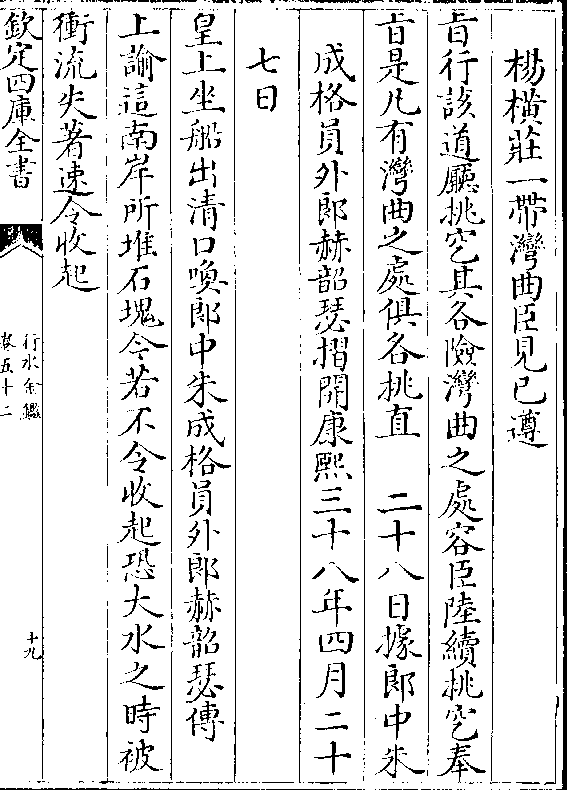 楊橫莊一帶灣曲臣見已遵
旨行該道廳挑空其各險灣曲之處容臣陸續挑空奉
旨是凡有灣曲之處俱各挑直　二十八日據郎中朱
成格員外郎赫韶瑟摺開康熙三十八年四月二十
七日
皇上坐船出清口喚郎中朱成格員外郎赫韶瑟傳
上諭這南岸所堆石塊今若不令收起恐大水之時被
衝流失著速令收起
欽定四庫全書
行水金鑑
卷五十二
十九